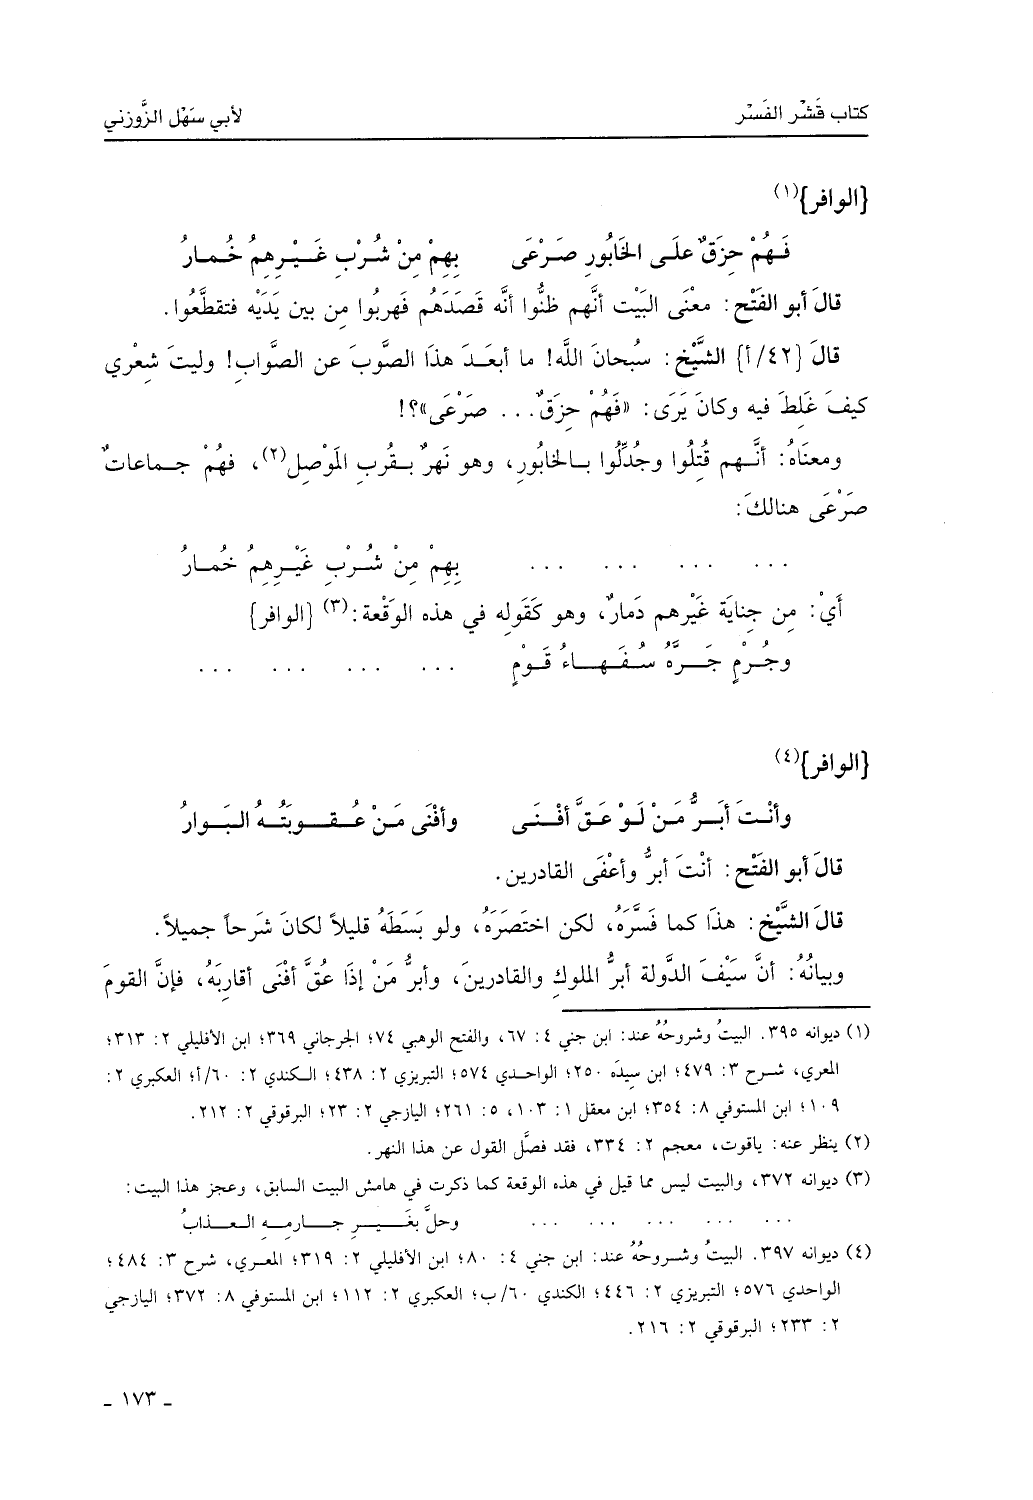 كتاب قَشْر الفَسْر
لأبي سَهْل الزَّوزني
{الوافر}(١)
فَـهُمْ حِزَقٌ علَـى الخَابُورِ صَـرْعَى بِهِمْ مِنْ شُـرْبِ غَـيْـرِهِمُ خُـمـارُ
قالَ أبو الفَتْح: معْنَى البَيْت أنَّهم ظنُّوا أنَّه قَصَدَهُم فَهربُوا مِن بين يَدَيْه فتقطَّعُوا.
قالَ {٤٢/أ} الشَّيْخ: سُبحانَ اللَّه! ما أبعَـدَ هذَا الصَّوبَ عن الصَّوابِ! وليتَ شِعْري
كيفَ غَلِطَ فيه وكانَ يَرَى: «فَهُمْ حِزَقٌ... صَرْعَى»؟!
ومعنَاهُ: أنَّـهم قُتِلُوا وجُدِّلُوا بـالخابُورِ، وهو نَهرٌ بـقُربِ المَوْصِل(٢)، فهُمْ جـماعاتٌ
صَرْعَى هنالكَ:
... ... ... ... بِهِمْ مِنْ شُـرْبِ غَيْـرِهِمُ خُمـارُ
أَيْ: مِن جِنايَة غَيْرهم دَمارٌ، وهو كَقَولِه في هذه الوَقْعة:(٣) {الوافر}
وجُـرْمٍ جَـرَّهُ سُـفَـهـاءُ قَـوْمٍ ... ... ... ...
{الوافر}(٤)
وأنْـتَ أبَـرُّ مَـنْ لَـوْ عَـقَّ أفْـنَـى وأفْنَى مَـنْ عُـقـوبَتُـهُ البَـوارُ
قالَ أبو الفَتْح: أنْتَ أبرُّ وأعْفَى القادرين.
قالَ الشَّيْخ: هذَا كما فَسَّرَهُ، لكن اختَصَرَهُ، ولو بَسَطَهُ قليلاً لكانَ شَرحاً جميلاً.
وبيانُهُ: أنَّ سَيْفَ الدَّولة أبرُّ الملوكِ والقادرينَ، وأبرُّ مَنْ إذَا عُقَّ أفْنَى أقاربَهُ، فإنَّ القومَ
(١) ديوانه ٣٩٥. البيتُ وشروحُهُ عند: ابن جني ٤: ٦٧، والفتح الوهبي ٧٤؛ الجرجاني ٣٦٩؛ ابن الأفليلي ٢: ٣١٣؛
المعري، شـرح ٣: ٤٧٩؛ ابن سِيدَه ٢٥٠؛ الواحـدي ٥٧٤؛ التبريزي ٢: ٤٣٨؛ الـكندي ٢: ٦٠/أ؛ العكبري ٢:
١٠٩؛ ابن المستوفي ٨: ٣٥٤؛ ابن معقل ١: ١٠٣، ٥: ٢٦١؛ اليازجي ٢: ٢٣؛ البرقوقي ٢: ٢١٢.
(٢) ينظر عنه: ياقوت، معجم ٢: ٣٣٤، فقد فصَّل القول عن هذا النهر.
(٣) ديوانه ٣٧٢، والبيت ليس مما قيل في هذه الوقعة كما ذكرت في هامش البيت السابق، وعجز هذا البيت:
... ... ... ... وحلَّ بغَـيـرِ جـارِمِـهِ العـذابُ
(٤) ديوانه ٣٩٧. البيتُ وشروحُهُ عند: ابن جني ٤: ٨٠؛ ابن الأفليلي ٢: ٣١٩؛ المعـري، شرح ٣: ٤٨٤؛
الواحدي ٥٧٦؛ التبريزي ٢: ٤٤٦؛ الكندي ٦٠/ب؛ العكبري ٢: ١١٢؛ ابن المستوفي ٨: ٣٧٢؛ اليازجي
٢: ٢٣٣؛ البرقوقي ٢: ٢١٦.
ـ ١٧٣ ـ